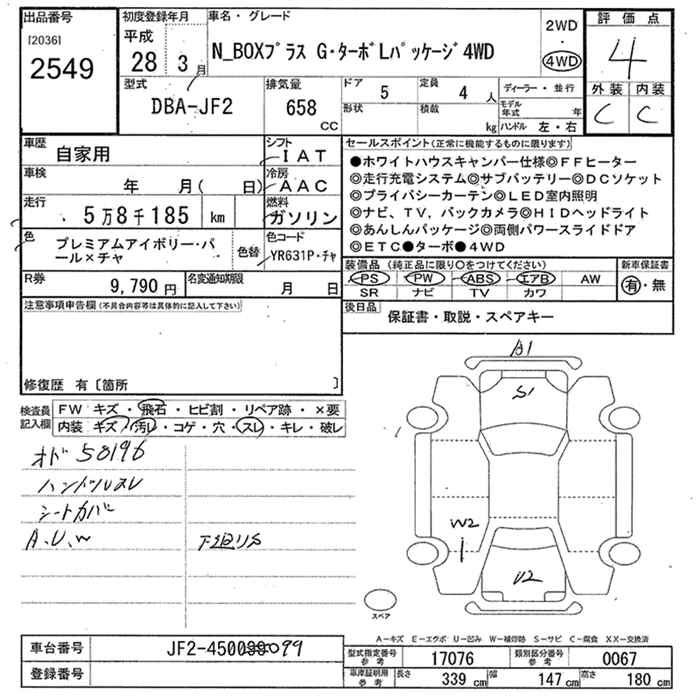 出品番号
[2036]
2549
初度登録年月
平成
28 3月
車名・グレード
N_BOXプラス G・ターボLパッケージ4WD
2WD
・
4WD
評価点
4
外装 内装
C C
型式
DBA-JF2
排気量
658
CC
ドア
5
定員
4人
形状
積載
kg
ディーラー・並行
モデル年式 年
ハンドル 左・右
車歴
自家用
シフト
IAT
車検
年 月( 日)
冷房
AAC
走行
5万8千185 km
燃料
ガソリン
色
プレミアムアイボリー・パール×チャ
色替
色コード
YR631P・チャ
R券
9,790円
名変通知期限
月 日
セールスポイント(正常に機能するものに限ります)
●ホワイトハウスキャンパー仕様◎FFヒーター
◎走行充電システム◎サブバッテリー◎DCソケット
◎プライバシーカーテン◎LED室内照明
◎ナビ、TV、バックカメラ◎HIDヘッドライト
◎あんしんパッケージ◎両側パワースライドドア
◎ETC●ターボ●4WD
装備品(純正品に限り〇をつけてください)
PS PW ABS エアB AW
SR ナビ TV カワ
新車保証書
有・無
後日品
保証書・取説・スペアキー
注意事項申告欄(不具合内容等は具体的に記入して下さい)
修復歴 有〔箇所 〕
検査員記入欄
FW キズ・飛石・ヒビ割・リペア跡・×要
内装 キズ・汚レ・コゲ・穴・スレ・キレ・破レ
オド58196
ハンドルスレ
シートカバー
A.U.W
下廻リS
A1
S1
W2
U2
スペア
A-キズ E-エクボ U-凹み W-補修跡 S-サビ C-腐食 XX-交換済
車台番号
JF2-4500099
登録番号
型式指定番号 参考
17076
類別区分番号 参考
0067
車庫証明用 参考
長さ 339 cm
幅 147 cm
高さ 180 cm